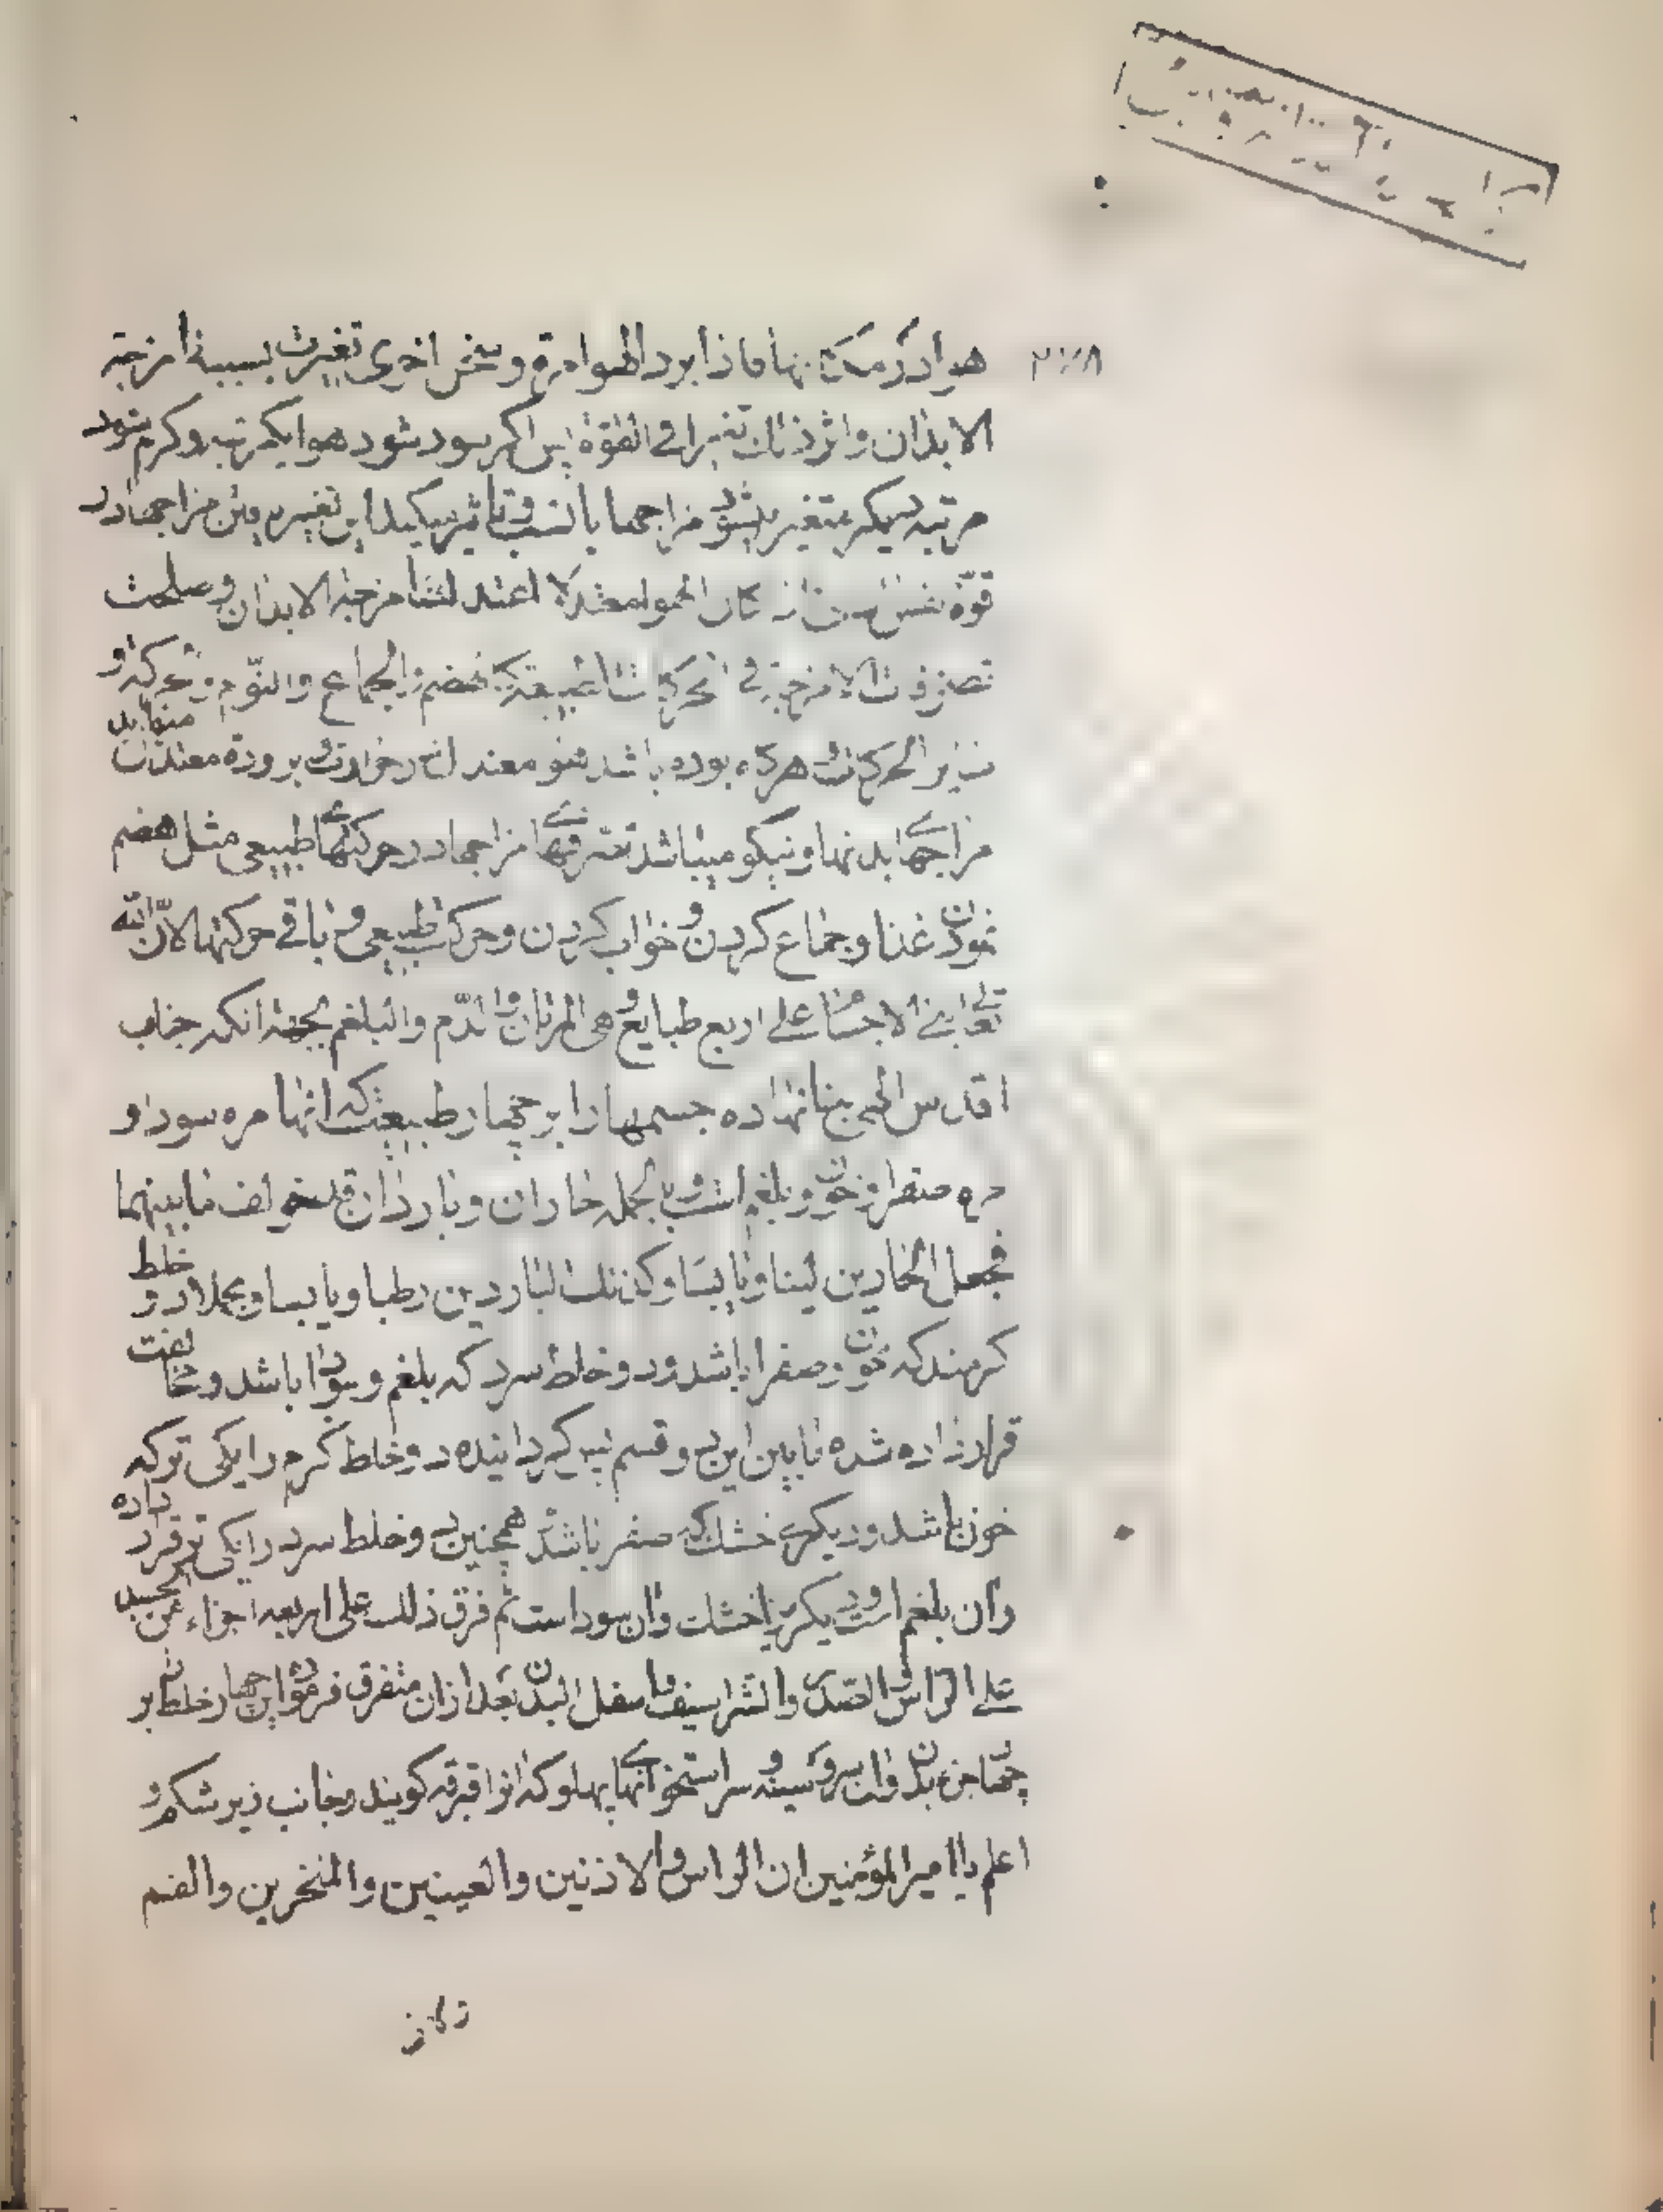 هوا در مکانها فاذا برد الهوا مرة و سخن اخری تغیرت بسببه امزجة
الابدان و اثر ذلك تغیرا فی القوة پس اکر سرد شود هوا یکمرتبه و کرم شود
مرتبه دیکر متغیر میشود مزاجها بانسبب و تاثیر میکند این تغییر یافتن مزاجها در
قوة فاذا کان الهوا معتدلا اعتدلت امزجة الابدان و صلحت
تصرفات الامزجة فی الحرکات الطبیعة کالهضم و الجماع و النوم و الحرکة و
سایر الحرکات هرکاه بوده باشد هوا معتدل در حرارت و برودة معتدلست
مزاجهای بدنها و نیکو میباشد تصرفهای مزاجها در حرکتهای طبیعی مثل هضم
نمودن غذا و جماع کردن و خواب کردن و حرکات طبیعی و باقی حرکتها لان الله
تعالی بنی الاجسام علی اربع طبایع و هی المرتان و الدم و البلغم بجهة انکه جناب
اقدس الهی بنا نهاده جسمها را بر چهار طبیعت که انها مره سودا و
مره صفرا و خون و بلغم است و بالجمله حاران و باردان قد خولف ما بینهما
فجعل الحارین لینا و یابسا و کذلك الباردین رطبا و یابسا و مجملا دو خلط
کرمند که خون و صفرا باشد و دو خلط سرد که بلغم و سودا باشد و مخالفت
قرار داده شده مابین این دو قسم پس کردانیده دو خلط کرم را یکی تر که
خون باشد و دیکری خشك که صفرا باشد همچنین دو خلط سرد را یکی تر قرار داده
و ان بلغم است و دیکری را خشك و ان سودا است ثم فرق ذلك علی اربعة اجزاء من الجسد
علی الراس و الصدر و الشراسیف و اسفل البدن بعد از ان متفرق فرموده این چهار خلط بر
چهار جزء بدن و ان سر و سینه و سر استخوانهای پهلو که انرا قبرقه کویند و جانب زیر شکم و
اعلم یا امیر المؤمنین ان الراس و الاذنین و العینین و المنخرین و الفم